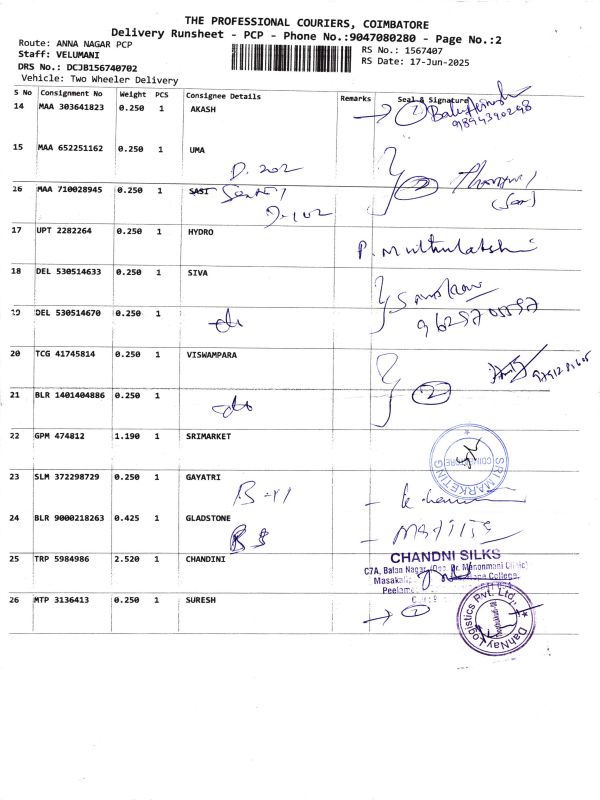 THE PROFESSIONAL COURIERS, COIMBATORE
Delivery Runsheet - PCP - Phone No.:9047080280 - Page No.:2
Route: ANNA NAGAR PCP
Staff: VELUMANI
DRS No.: DCJB156740702
Vehicle: Two Wheeler Delivery
RS No.: 1567407
RS Date: 17-Jun-2025
S No Consignment No Weight PCS Consignee Details Remarks Seal & Signature
14 MAA 303641823 0.250 1 AKASH
9894390248
15 MAA 652251162 0.250 1 UMA
D. 202
16 MAA 710028945 0.250 1 SASI
D-102
2
17 UPT 2282264 0.250 1 HYDRO P. Muthulakshmi
18 DEL 530514633 0.250 1 SIVA
19 DEL 530514670 0.250 1
do
20 TCG 41745814 0.250 1 VISWAMPARA
21 BLR 1401404886 0.250 1
do
2
22 GPM 474812 1.190 1 SRIMARKET
SRI MARKETING
23 SLM 372298729 0.250 1 GAYATRI
24 BLR 9000218263 0.425 1 GLADSTONE
25 TRP 5984986 2.520 1 CHANDINI
CHANDNI SILKS
C7A, Balan Nagar, (Opp. Dr. Manonmani Clinic)
26 MTP 3136413 0.250 1 SURESH
1
DahNay Logistics Pvt. Ltd.,